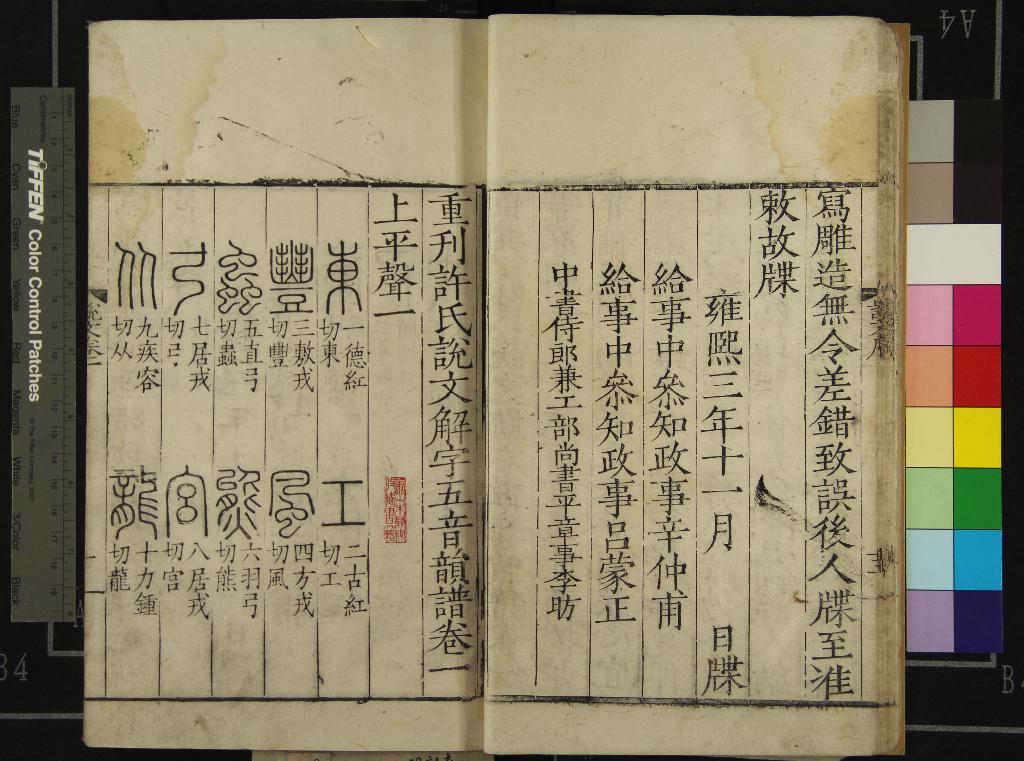 寫雕造無令差錯致誤後人牒至准
敕故牒
雍熙三年十一月 日牒
給事中叅知政事辛仲甫
給事中叅知政事呂蒙正
中書侍郎兼工部尚書平章事李昉
重刊許氏說文解字五音韻譜卷一
上平聲一
東 一德紅切東 工 二古紅切工
豐 三敷戎切豐 風 四方戎切風
蟲 五直弓切蟲 熊 六羽弓切熊
弓 七居戎切弓 宮 八居戎切宮
从 九疾容切从 龍 十力鍾切龍
說文卷一
TIFFEN Color Control Patches
© The Tiffen Company, 2007
Centimetres
Inches
Blue Cyan Green Yellow Red Magenta White 3/Color Black
A4
B4